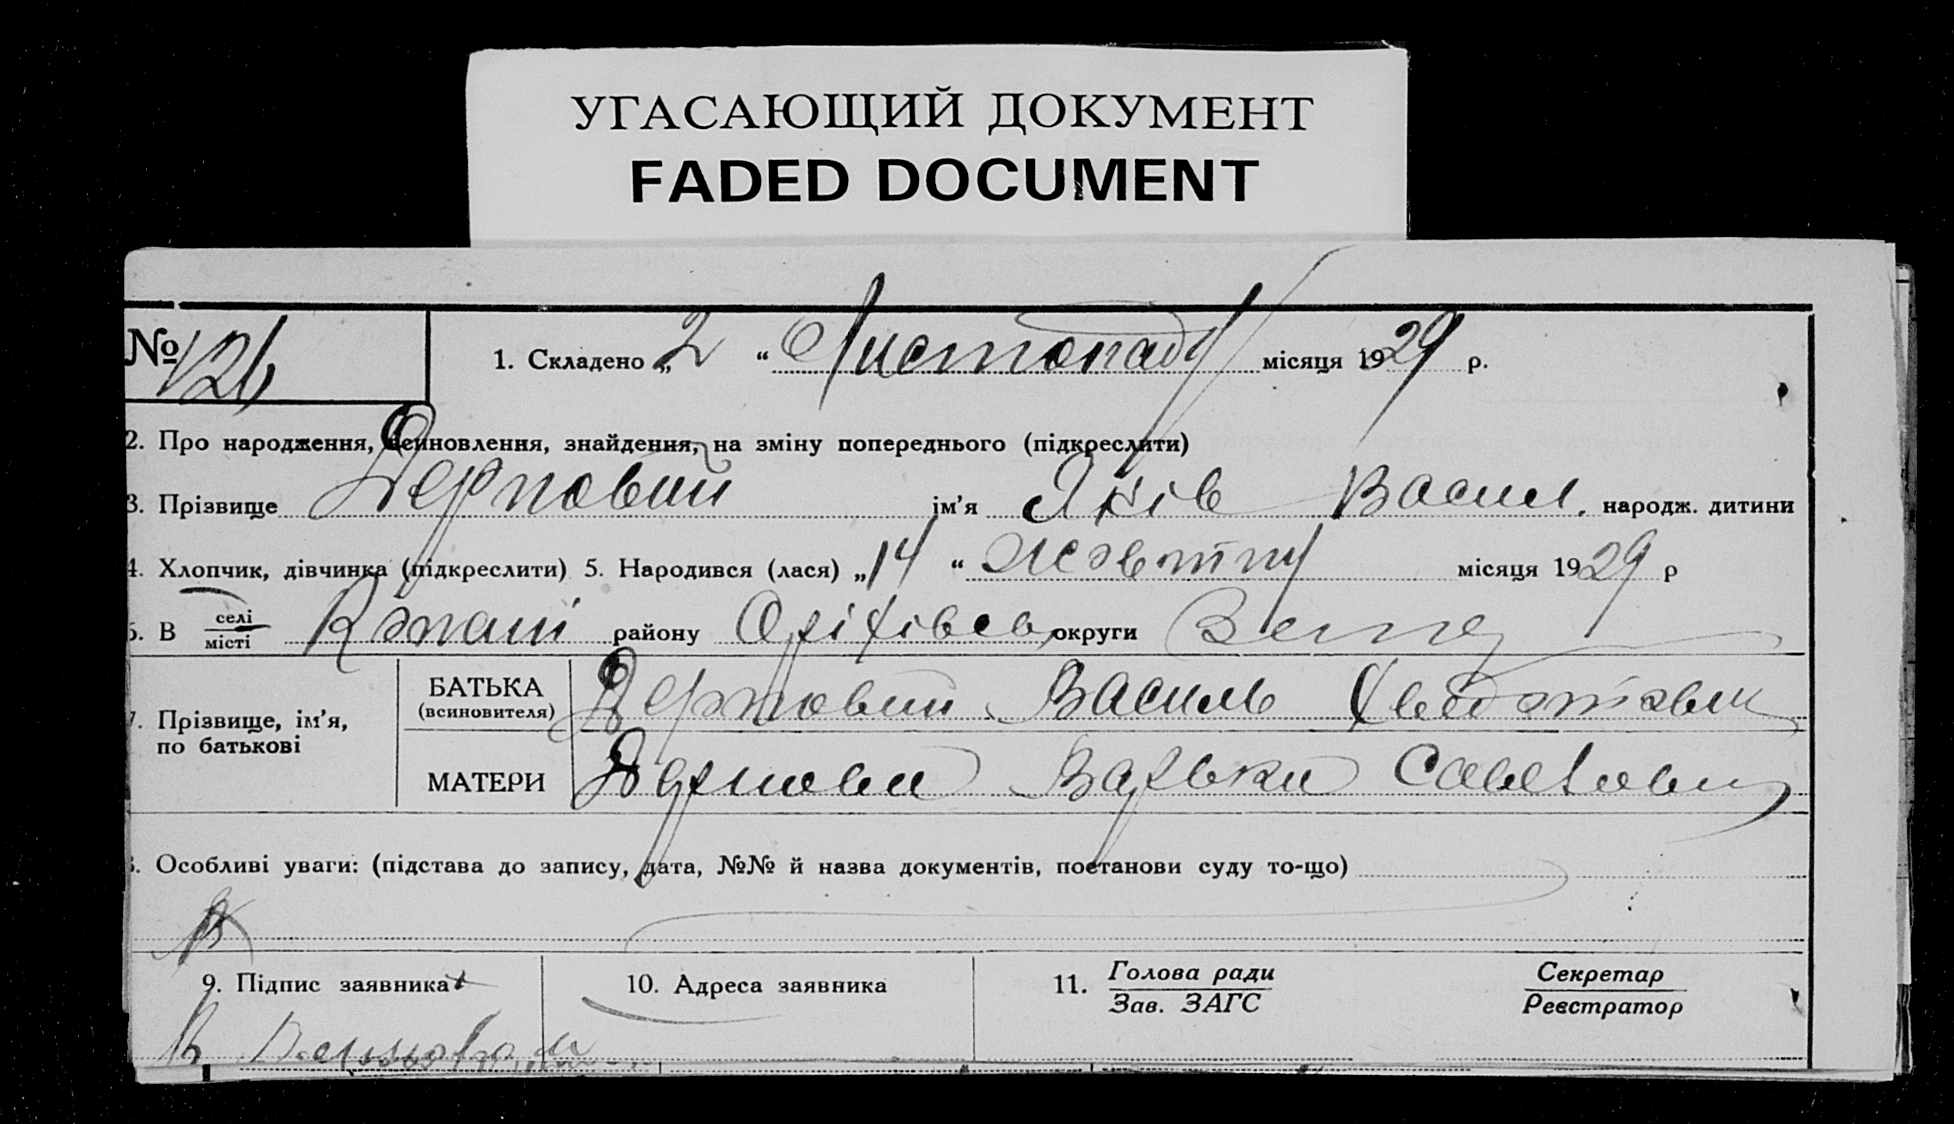 УГАСАЮЩИЙ ДОКУМЕНТ
FADED DOCUMENT
№ 126
1. Складено „ 2 “ Листопаду місяця 1929 р.
2. Про народження, всиновлення, знайдення, на зміну попереднього (підкреслити)
3. Прізвище Дерповий ім’я Яків Васил. народж. дитини
4. Хлопчик, дівчинка (підкреслити) 5. Народився (лася) „ 14 “ Жовтня місяця 1929 р
6. В селі місті Копані району Оріхівсь округи
7. Прізвище, ім’я, по батькові
БАТЬКА (всиновителя) Дерповий Василь
МАТЕРИ Варька
8. Особливі уваги: (підстава до запису, дата, №№ й назва документів, постанови суду то-що)
9. Підпис заявника 10. Адреса заявника 11. Голова ради Зав. ЗАГС Секретар Реєстратор